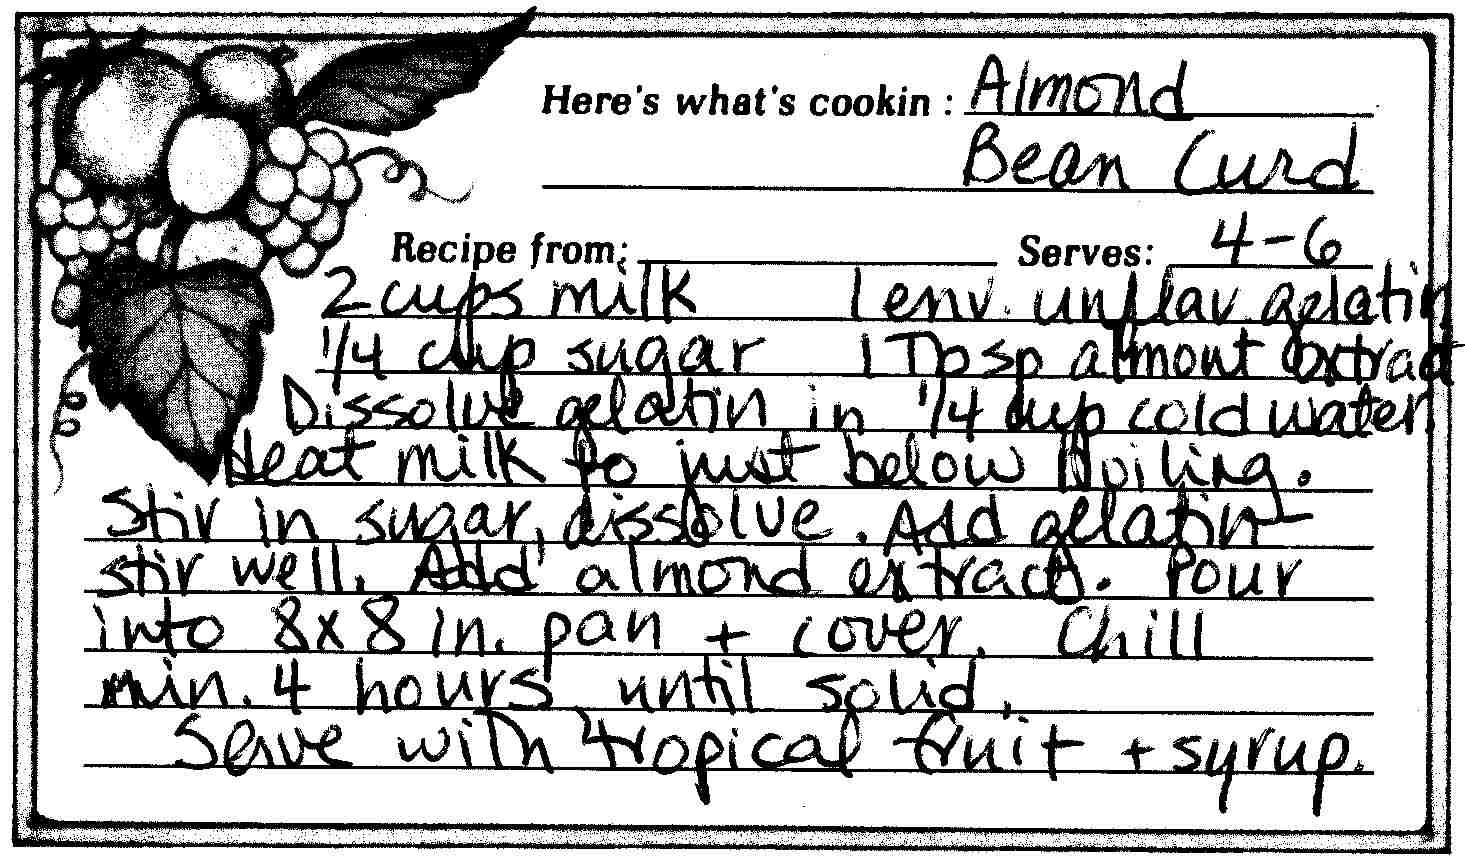 Here's what's cookin: Almond
Bean Curd
Recipe from: Serves: 4-6
2 cups milk 1 env. unflav gelatin
1/4 cup sugar 1 Tbsp almont extract
Dissolve gelatin in 1/4 cup cold water
Heat milk to just below boiling.
Stir in sugar, dissolve. Add gelatin-
stir well. Add almond extract. Pour
into 8x8 in. pan + cover. Chill
min. 4 hours until solid.
Serve with tropical fruit + syrup.